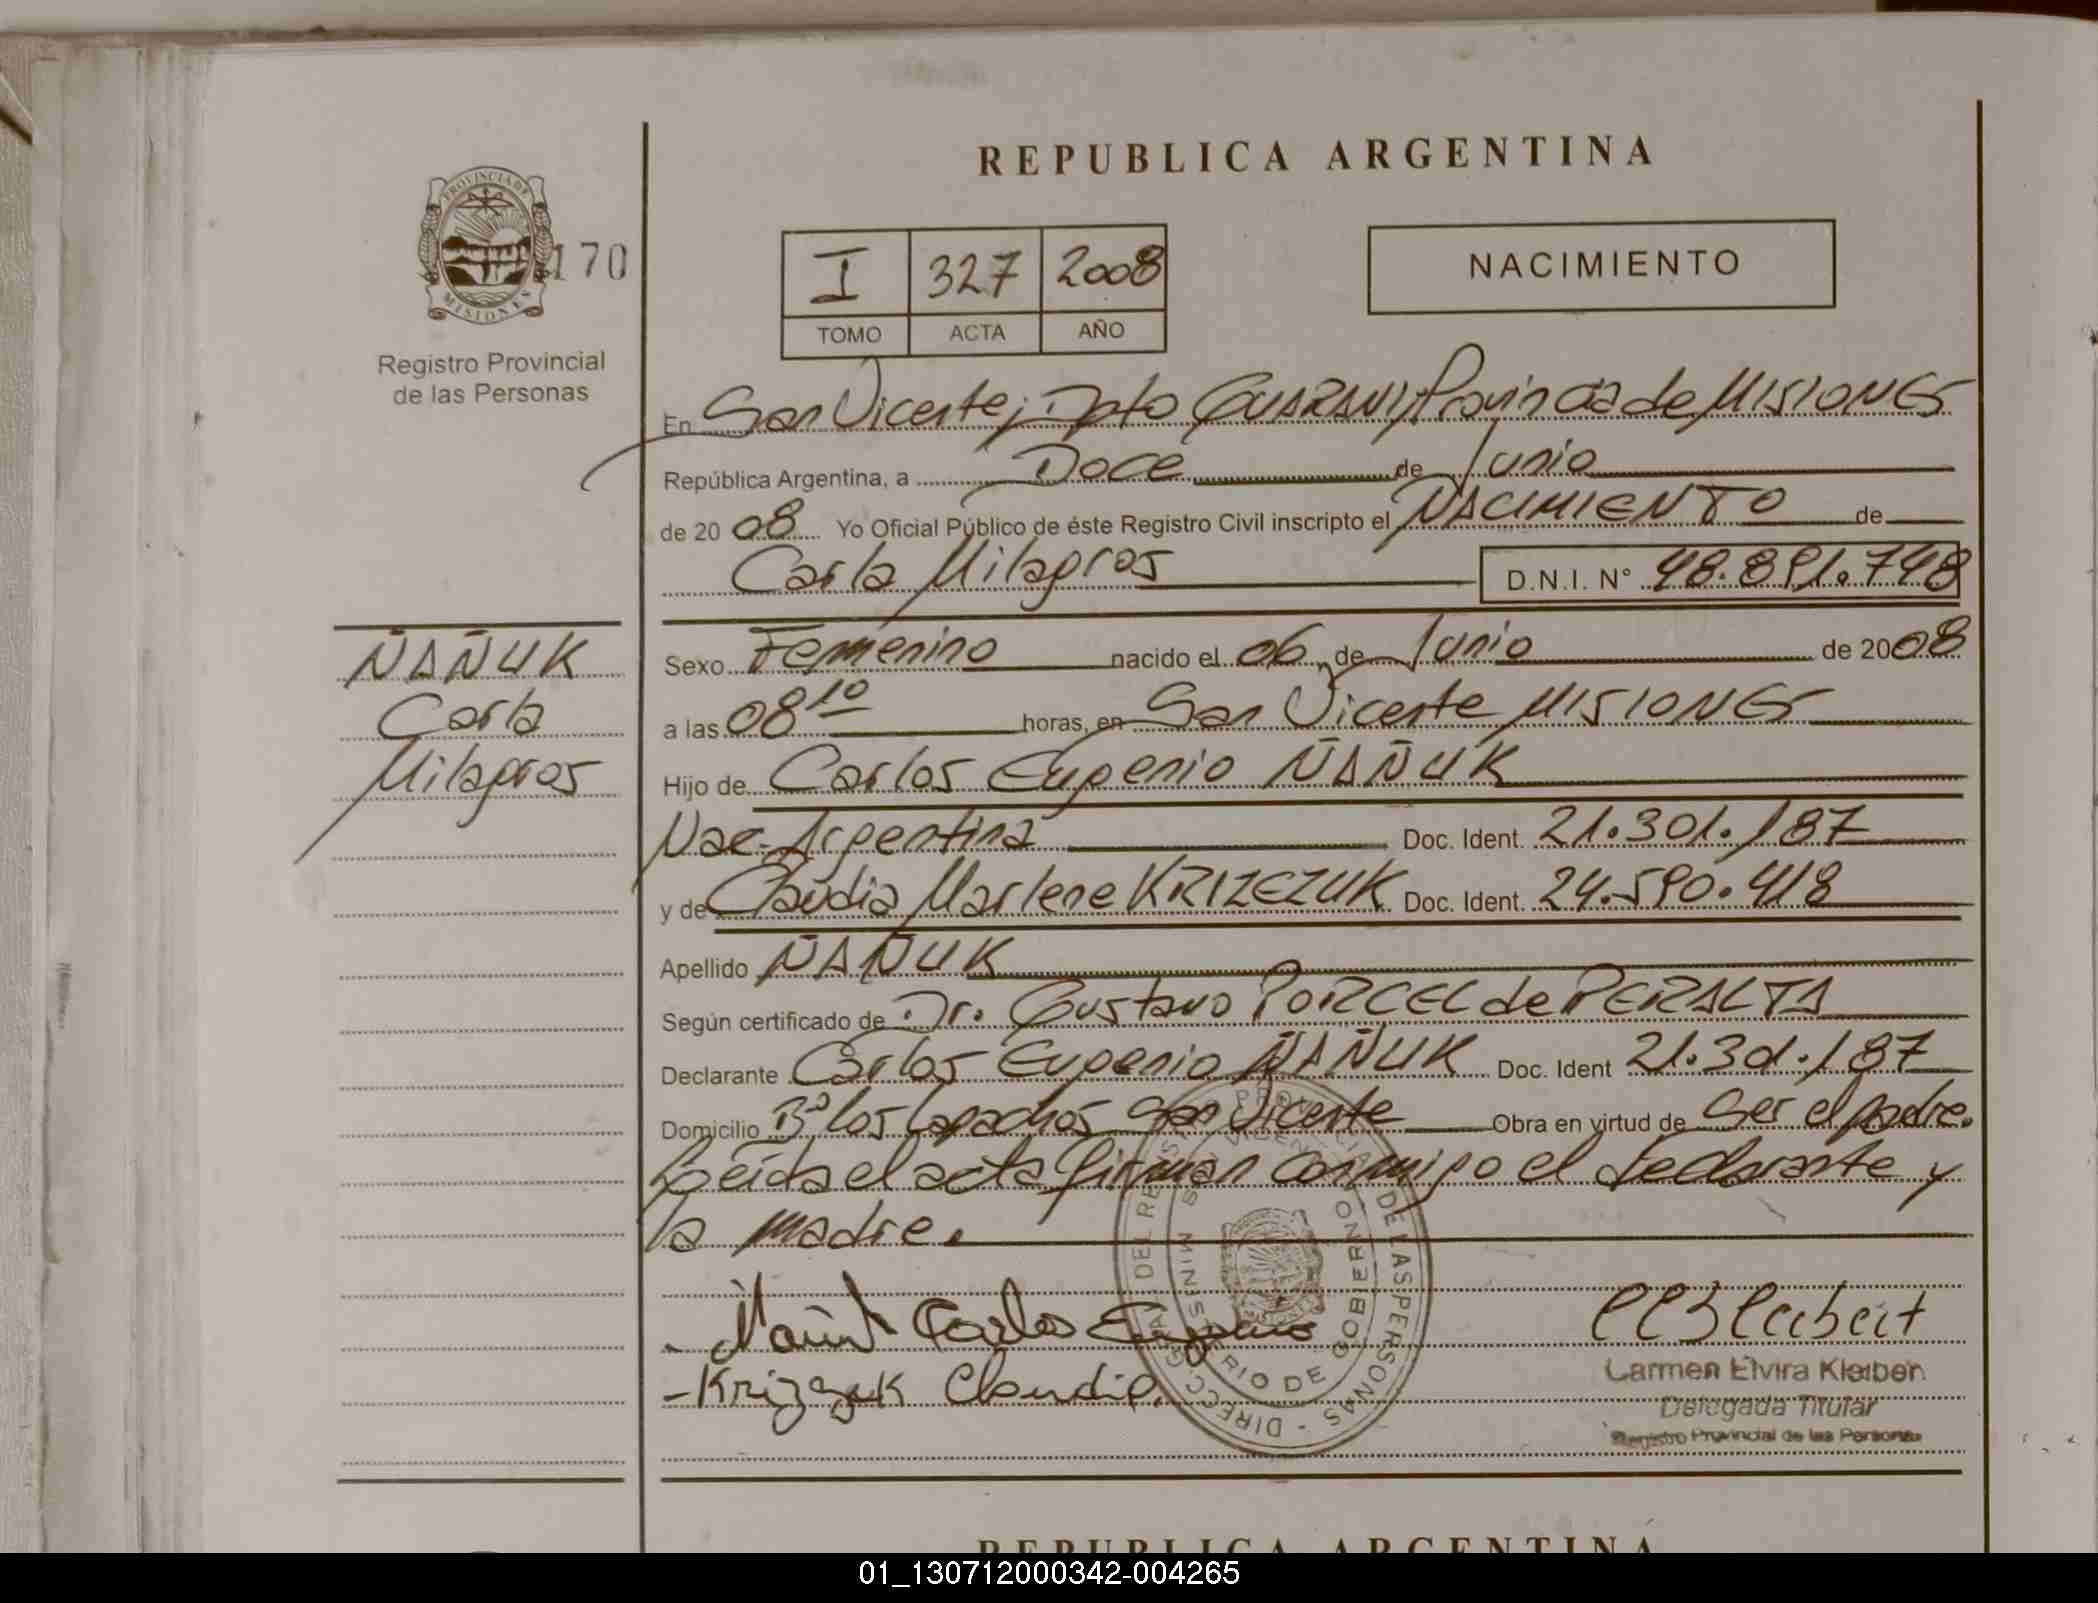 REPUBLICA ARGENTINA
PROVINCIA DE
MISIONES
170
Registro Provincial
de las Personas
I 327 2008
TOMO ACTA AÑO
NACIMIENTO
En San Vicente, Dpto GUARANI, Provincia de MISIONES
República Argentina, a Doce de Junio
de 20 08 Yo Oficial Público de éste Registro Civil inscripto el NACIMIENTO de
Carla Milagros D.N.I. N° 48.891.748
ÑAÑUK
Carla
Milagros
Sexo Femenino nacido el 06 de Junio de 2008
a las 08 10 horas, en San Vicente MISIONES
Hijo de Carlos Eugenio ÑAÑUK
Nac. Argentina Doc. Ident. 21.301.187
y de Claudia Marlene KRIZEZUK Doc. Ident. 24.590.418
Apellido ÑAÑUK
Según certificado de Dr. Gustavo PORCEL de PERALTA
Declarante Carlos Eugenio ÑAÑUK Doc. Ident 21.301.187
Domicilio Bº los Lapachos San Vicente Obra en virtud de Ser el padre.
Leída el acta firman conmigo el declarante y
la madre.
Carlos Eugenio
- Krizezuk Claudia.
Carmen Elvira Kleiber
Delegada Titular
Registro Provincial de las Personas
MINISTERIO DE GOBIERNO
REPUBLICA ARGENTINA
01_130712000342-004265